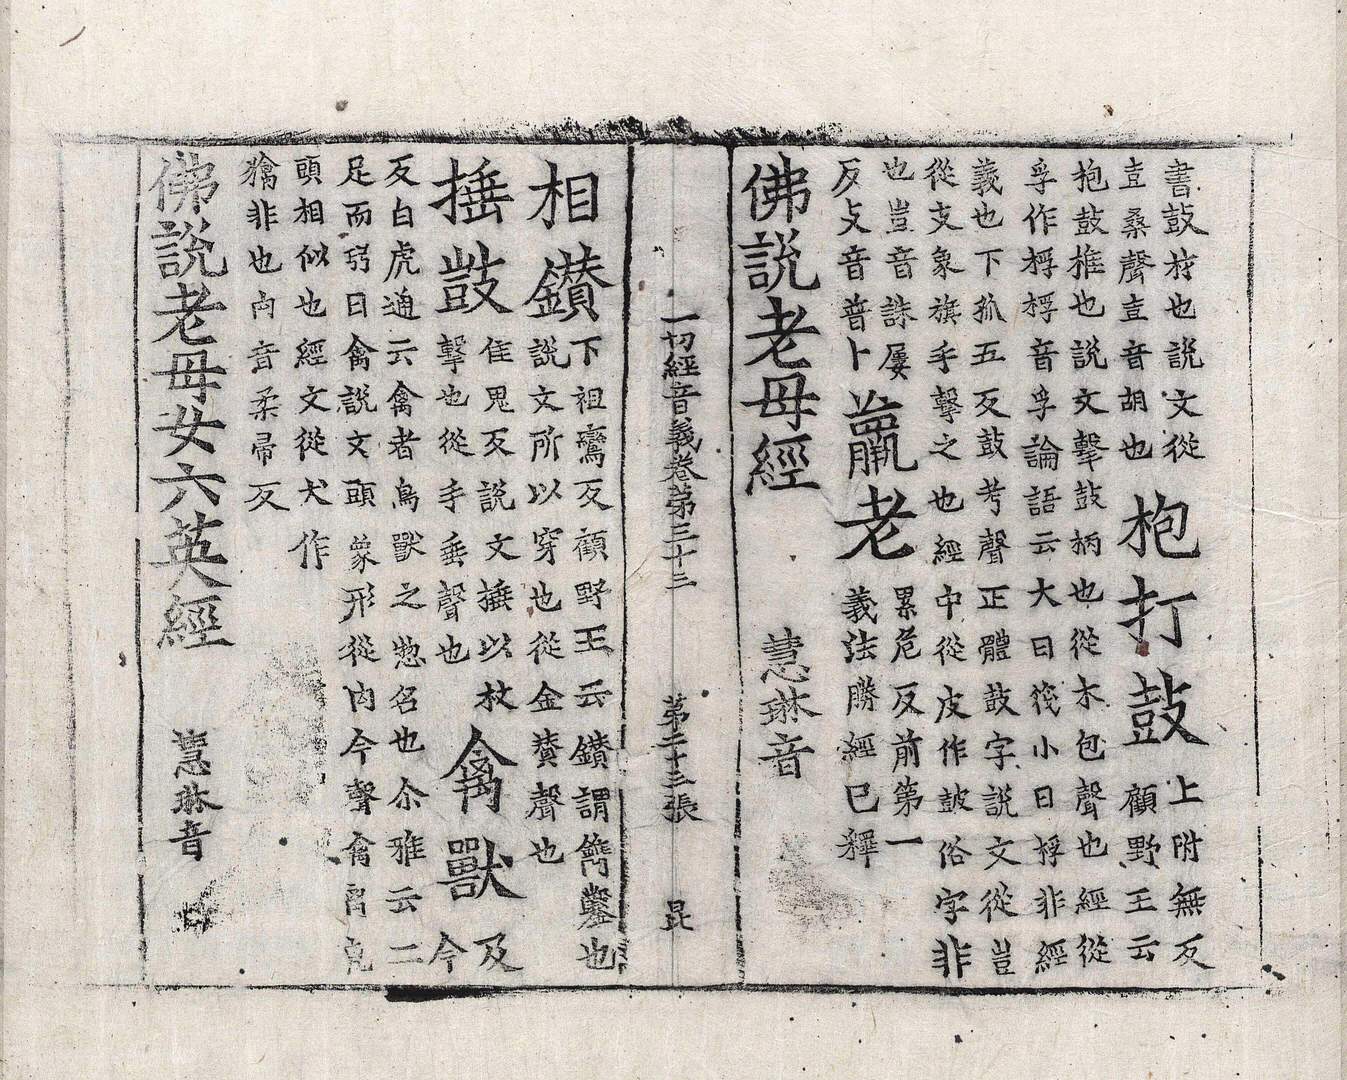 書鼓桴也說文從
壴桑聲壴音胡也
枹打鼓
上附無反
顧野王云
抱鼓椎也說文擊鼓柄也從木包聲也經從
孚作桴桴音孚論語云大曰筏小曰桴非經
義也下孤五反鼓考聲正體鼓字說文從豈
從支象旗手擊之也經中從皮作皷俗字非
也豈音誅屢
反攴音普卜
羸老
累危反前第一
義法勝經已釋
佛說老母經 慧琳音
一切經音義卷第三十三 第二十三張 昆
相鑚
下祖鸞反顧野王云鑚謂鐫鑿也
說文所以穿也從金賛聲也
捶鼓
隹累反說文捶以杖
擊也從手垂聲也
禽獸
及
今
反白虎通云禽者鳥獸之惣名也尒雅云二
足而羽曰禽說文頭象形從禸今聲禽
頭相似也經文從犬作
㺉非也禸音柔帚反
佛說老母女六英經 慧琳音